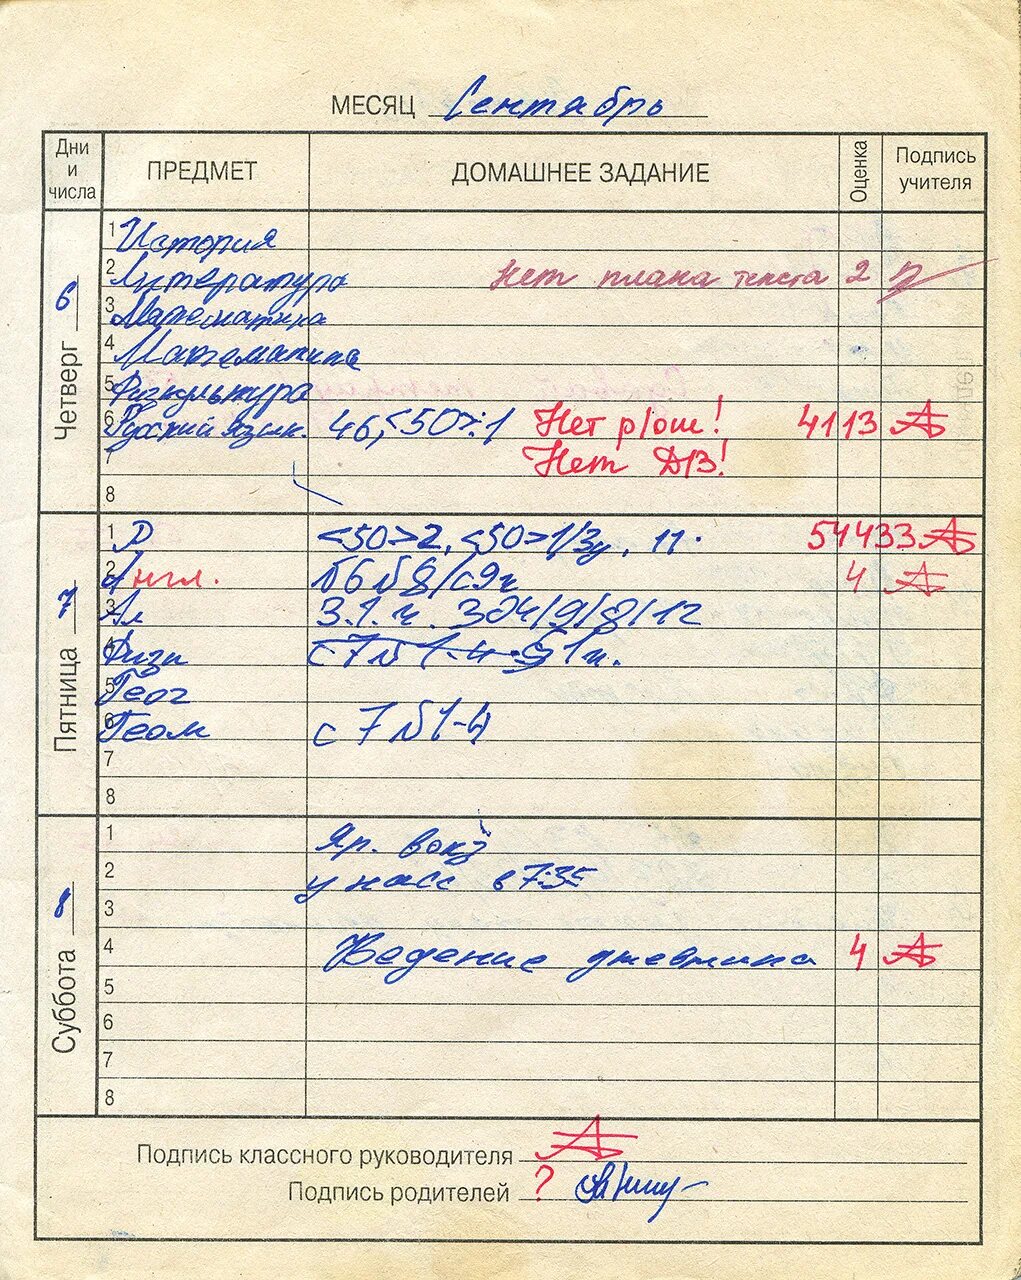 МЕСЯЦ Сентябрь
Дни и числа ПРЕДМЕТ ДОМАШНЕЕ ЗАДАНИЕ Оценка Подпись учителя
Четверг 6
1 История
2 Литература Нет плана текста 2
3 Математика
4 Математика
5 Физкультура
6 Русский язык. 46, <50>:1 Нет р/ош! 4113
7 Нет Д/З!
8
Пятница 7
1 Р <50>2, <50>1/3у, 11.
54433
2 Англ. №6 №8/с9ч 4
3 Ал 3.1.ч. 304/9/8/12
4 Физи с7 №1-4
5 Геог
6 Геом с 7 №1-4
7
8
Суббота 8
1 Яр. вокз
2 у касс в 7:35
3
4 Ведение дневника 4
5
6
7
8
Подпись классного руководителя
Подпись родителей ?